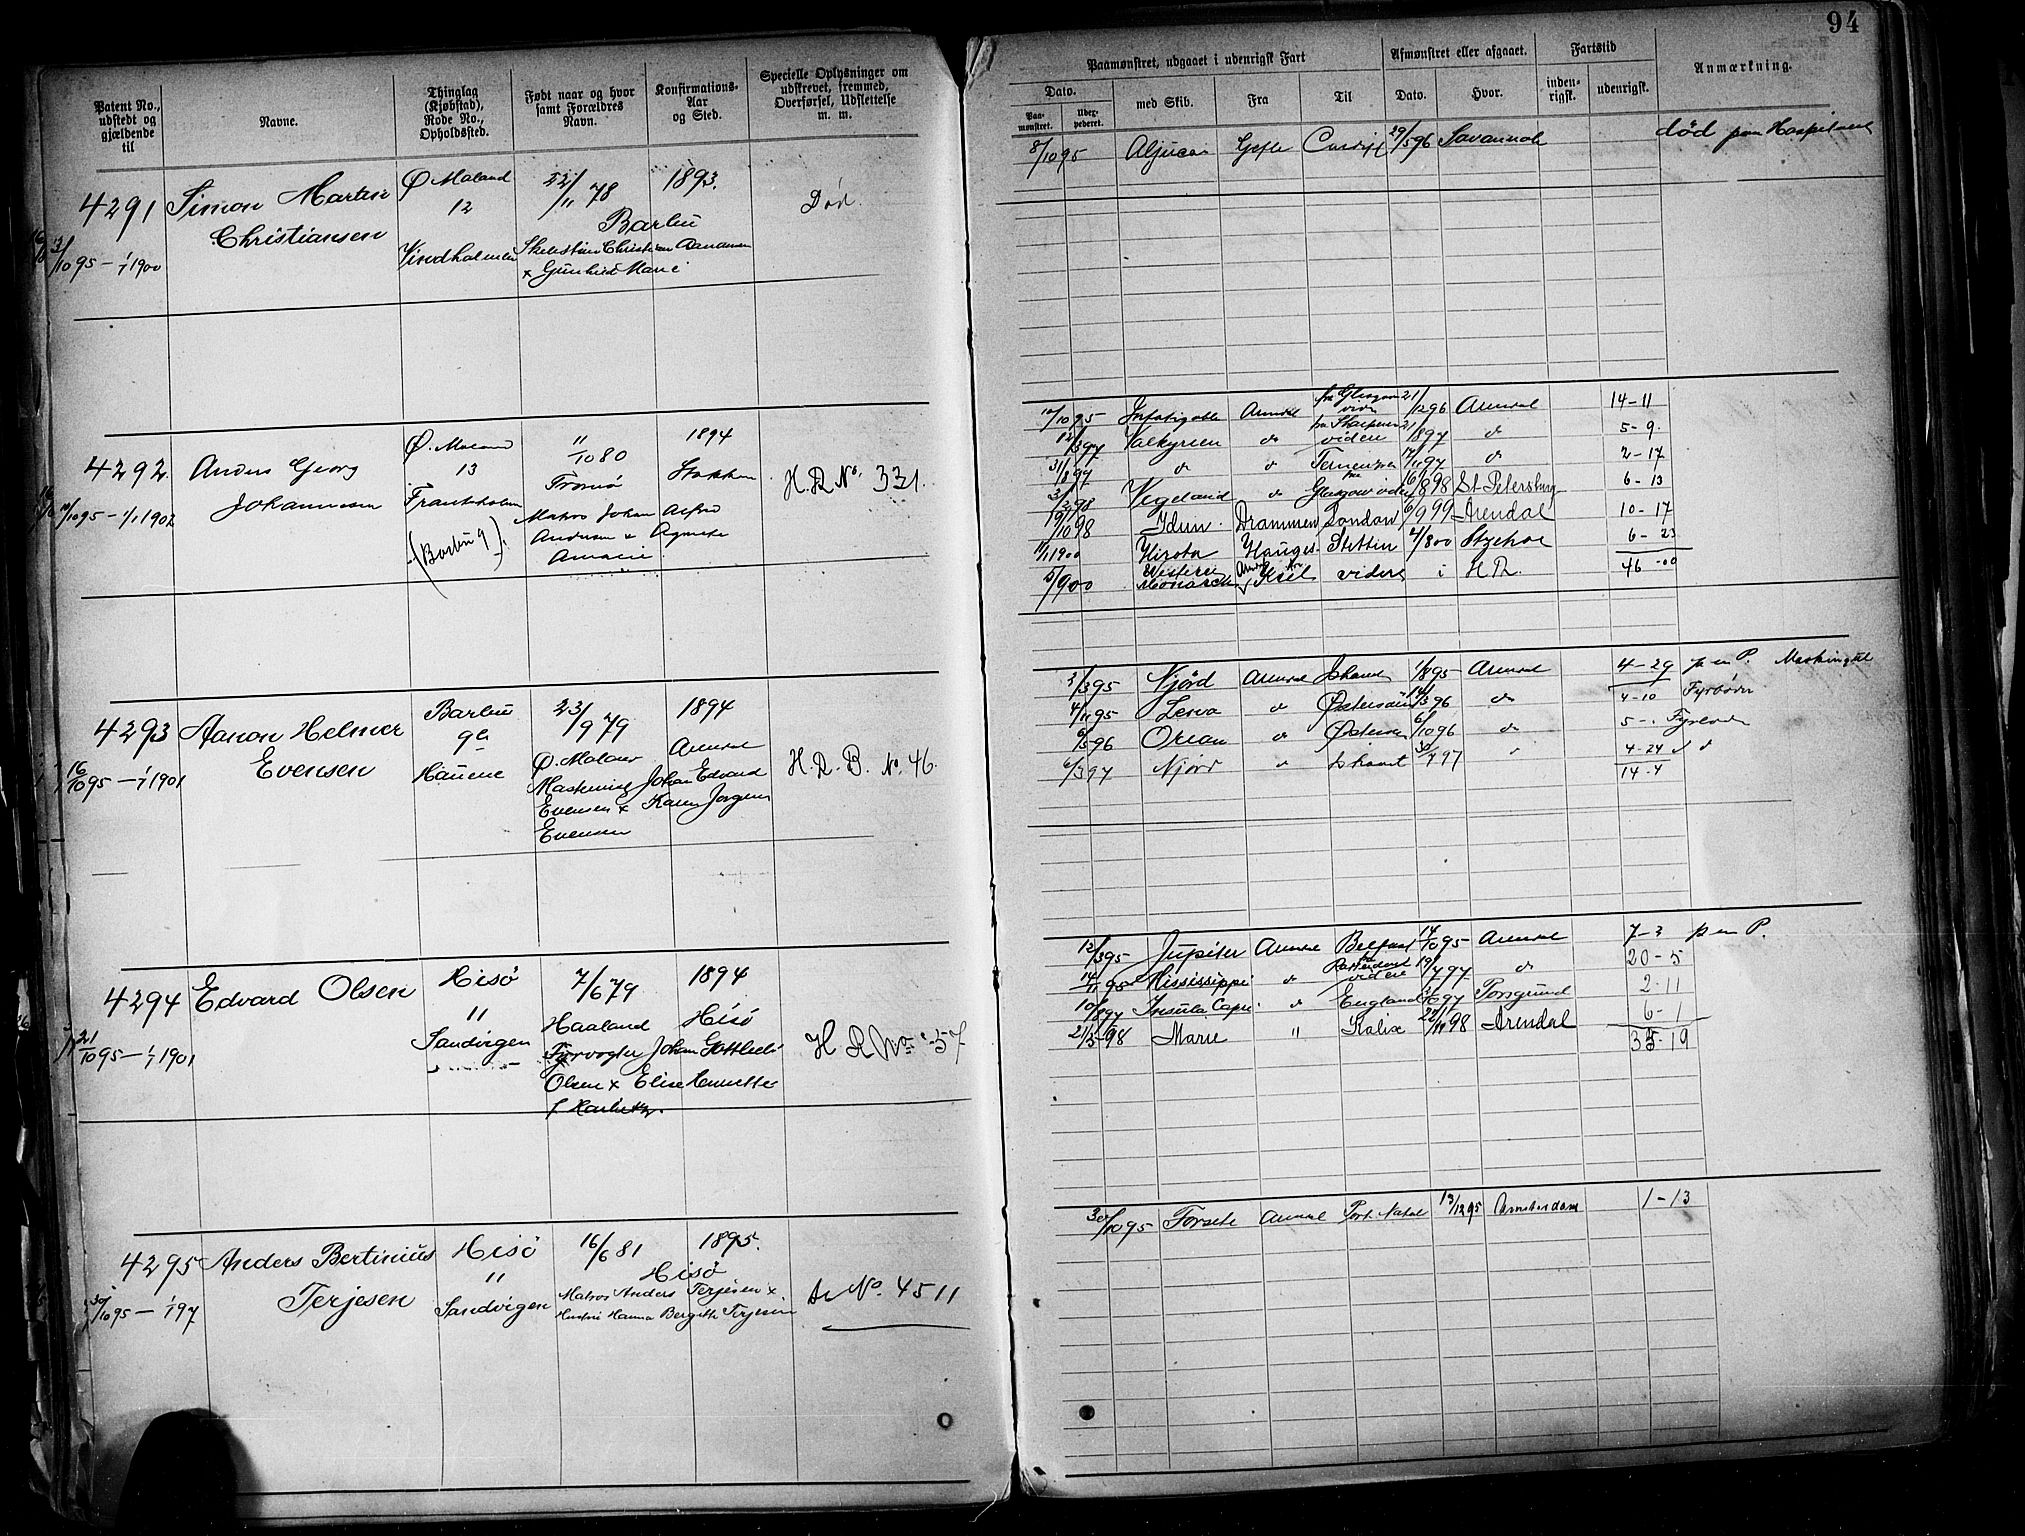 94
Patent No.,
udstedt og
gjældende
til
Navne.
Thinglag
(Kjøbstad),
Rode No.,
Opholdssted.
Født naar og hvor
samt Forældres
Navn.
Konfirmations-
Aar
og Sted.
Specielle Oplysninger om
udskrevet, fremmed,
Overførsel, Udslettelse
m. m.
Paamønstret, udgaaet i udenrigsk Fart
Afmønstret eller afgaaet.
Fartstid
Anmærkning.
Dato.
Paa-
mønstret.
med Skib.
Fra
Til
Dato.
Hvor.
inden-
rigsk.
udenrigsk.
4291
Simon Martin
Christiansen
Ø. Moland
12
Vindholmen
22/11 78
Barbu
1893.
Død.
3/10 95 – 1/1 1900
8/10 95 Aljuca Gefle Cardiff 29/5 96 Savannah død paa Hospitalet
4292
Anders Georg
Johannesen
Ø. Moland
13
Frantsholm
(Barbu 9)
11/10 80
Tromö
Matros Johan Alfred
Andersen & Agnethe
Amalie
1894
Stokken
H. R. No. 331.
10/10 95 – 1/1 1902
10/10 95 Indfatigable Arendal 21/12 96 Arendal 14-11
12/3 97 Valkyrien do viden 21/8 97 do 5-9
31/8 97 do do 17/11 97 do 2-17
3/2 98 Vegeland do Glasgow viden 6/8 98 St Petersburg 6-13
19/10 98 Idun. Drammen London 6/9 99 Arendal 10-17
11/1 1900 Hirota Hauges. Stettin 4/8 00 Itzehoe 6-23
5/9 00 Western Monarch Kiel videre i H.R. 46-00
4293
Aanon Helmer
Evensen
Barbu
9a
Haüene
23/9 79
Ø. Moland
Maskinist Johan Edvard
Evensen & Karen Jørgine
Evensen
1894
Arendal
H. R. B. No. 46.
16/10 95 – 1/1 1901
2/3 95 Njörd Arendal Ishavet 1/10 95 Arendal 4-29 p en P.
4/11 95 Lesva do Østersöen 14/3 96 do 4-10 Fyrbøder
6/5 96 Orion do Østersøen 6/10 96 do 5-.
6/3 97 Njörd do Ishavet 30/7 97 4-24
14-4
4294
Edvard Olsen
Hisö
11
Sandvigen
7/6 79
Haaland
Fyrvogter Johan Gottlieb
Olsen & Elise Henriette
1894
Hisö
H R No 57
21/10 95 – 1/1 1901
12/3 95 Jupiter Arendal Belfast 14/10 95 Arendal 7-3 p en P.
14/11 95 Mississippi do videre 19/7 97 do 20-5
10/8 97 Insula Capri do England 21/10 97 Porsgrund 2-11
21/5-98 Marie " Kalix 22/11 98 Arendal 6-1
35-19
4295
Anders Bertinius
Terjesen
Hisö
11
Sandvigen
16/6 81
Hisö
Matros Anders Terjesen &
Hustru Hanna Bergitte Terjesen
1895.
A No. 4511
30/10 95 – 1/1 97
30/10 95 Forsete Arendal Port Natal 13/12 95 Amsterdam 1-13